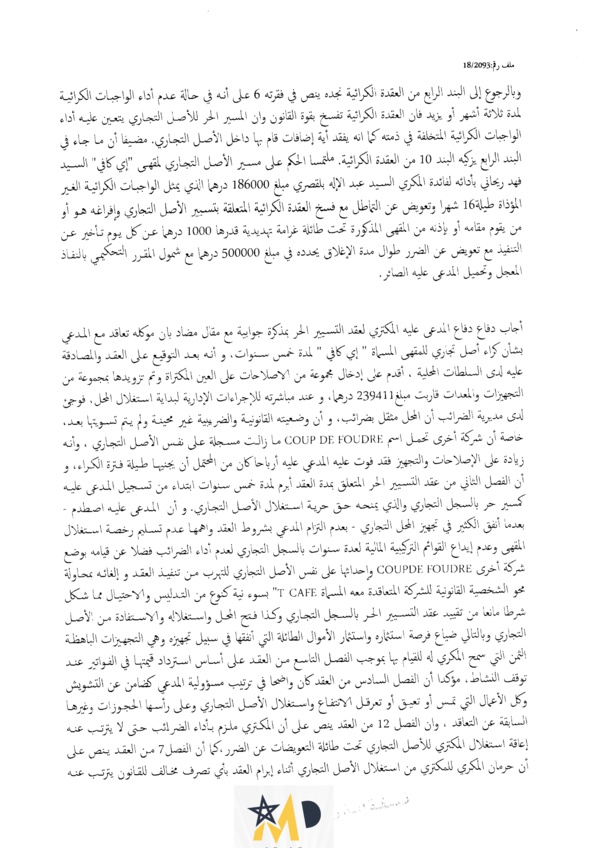 ملف رقم:18/2093
وبالرجوع إلى البند الرابع من العقدة الكرائية نجده ينص في فقرته 6 على أنه في حالة عدم أداء الواجبات الكرائية
لمدة ثلاثة أشهر أو يزيد فان العقدة الكرائية تفسخ بقوة القانون وان المسير الحر للأصل التجاري يتعين عليه أداء
الواجبات الكرائية المتخلفة في ذمته كما انه يفقد أية إضافات قام بها داخل الأصل التجاري. مضيفا أن ما جاء في
البند الرابع يزكيه البند 10 من العقدة الكرائية. ملتمسا الحكم على مسير الأصل التجاري لمقهى "إي كافي" السيد
فهد ريحاني بأدائه لفائدة المكري السيد عبد الإله بلقصري مبلغ 186000 درهما الذي يمثل الواجبات الكرائية الغير
المؤداة طيلة16 شهرا وتعويض عن التماطل مع فسخ العقدة الكرائية المتعلقة بتسيير الأصل التجاري وإفراغه هو أو
من يقوم مقامه أو بإذنه من المقهى المذكورة تحت طائلة غرامة تهديدية قدرها 1000 درهما عن كل يوم تأخير عن
التنفيذ مع تعويض عن الضرر طوال مدة الإغلاق يحدده في مبلغ 500000 درهما مع شمول المقرر التحكيمي بالنفاذ
المعجل وتحميل المدعى عليه الصائر.
أجاب دفاع دفاع المدعى عليه المكتري لعقد التسيير الحر بمذكرة جوابية مع مقال مضاد بان موكله تعاقد مع المدعي
بشأن كراء أصل تجاري للمقهى المسماة " إي كافي " لمدة خمس سنوات، و أنه بعد التوقيع على العقد والمصادقة
عليه لدى السلطات المحلية ، أقدم على إدخال مجموعة من الاصلاحات على العين المكتراة وتم تزويدها بمجموعة من
التجهيزات والمعدات قاربت مبلغ239411 درهما، و عند مباشرته للإجراءات الإدارية لبداية استغلال المحل، فوجئ
لدى مديرية الضرائب أن المحل مثقل بضرائب، و أن وضعيته القانونية والضريبية غير محينة ولم يتم تسويتها بعد،
خاصة أن شركة أخرى تحمل اسم COUP DE FOUDRE ما زالت مسجلة على نفس الأصل التجاري ، وأنه
زيادة على الإصلاحات والتجهيز فقد فوت عليه المدعى عليه أرباحا كان من المحتمل أن يجنيها طيلة فترة الكراء، و
أن الفصل الثاني من عقد التسيير الحر المتعلق بمدة العقد أبرم لمدة خمس سنوات ابتداء من تسجيل المدعى عليه
كمسير حر بالسجل التجاري والذي يمنحه حق حرية استغلال الأصل التجاري. و أن المدعى عليه اصطدم -
بعدما أنفق الكثير في تجهيز المحل التجاري - بعدم التزام المدعي بشروط العقد واهمها عدم تسليم رخصة استغلال
المقهى وعدم إيداع القوائم التركيبية المالية لعدة سنوات بالسجل التجاري لعدم أداء الضرائب فضلا عن قيامه بوضع
شركة أخرى COUPDE FOUDRE وإحداثها على نفس الأصل التجاري للتهرب من تنفيذ العقد و إلغائه بمحاولة
محو الشخصية القانونية للشركة المتعاقدة معه المسماة T CAFE" بسوء نية كنوع من التدليس والاحتيال مما شكل
شرطا مانعا من تقييد عقد التسيير الحر بالسجل التجاري وكذا فتح المحل واستغلاله والاستفادة من الأصل
التجاري وبالتالي ضياع فرصة استثماره واستثمار الأموال الطائلة التي أنفقها في سبيل تجهيزه وهي التجهيزات الباهظة
الثمن التي سمح المكري له للقيام بها بموجب الفصل التاسع من العقد على أساس استرداد قيمتها في الفواتير عند
توقف النشاط، مؤكدا أن الفصل السادس من العقد كان واضحا في ترتيب مسؤولية المدعي كضامن عن التشويش
وكل الأعمال التي تمس أو تعيق أو تعرقل الانتفاع واستغلال الأصل التجاري وعلى رأسها الحجوزات وغيرها
السابقة عن التعاقد ، وان الفصل 12 من العقد ينص على أن المكتري ملزم بأداء الضرائب حتى لا يترتب عنه
إعاقة استغلال المكتري للأصل التجاري تحت طائلة التعويضات عن الضرر،كما أن الفصل7 من العقد ينص على
أن حرمان المكري للمكتري من استغلال الأصل التجاري أثناء إبرام العقد بأي تصرف مخالف للقانون يترتب عنه